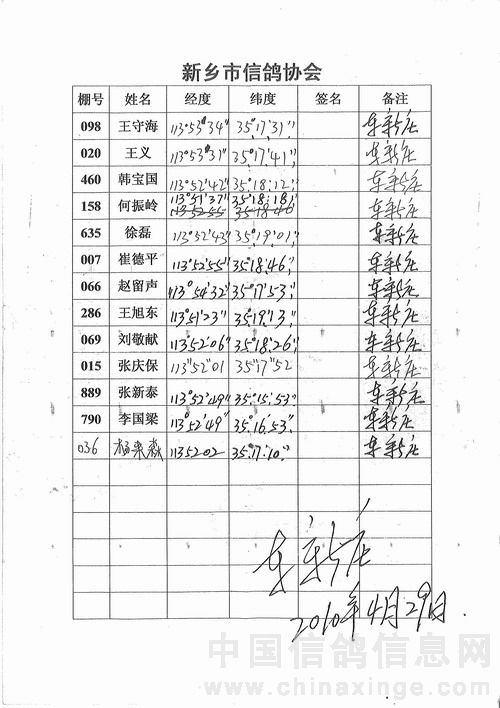 新乡市信鸽协会
棚号 姓名 经度 纬度 签名 备注
098 王守海 113°53'34" 35°17'31" 车新庄
020 王义 113°53'31" 35°17'41" 车新庄
460 韩宝国 113°52'42" 35°18'12" 车新庄
158 何振岭 113°51'37" 35°18'18" 车新庄
113°52'55 35°18'46
635 徐磊 113°52'43" 35°19'01" 车新庄
007 崔德平 113°52'55" 35°18'46" 车新庄
066 赵留声 113°54'32" 35°17'53" 车新庄
286 王旭东 113°51'23" 35°19'13" 车新庄
069 刘敬献 113°52'06" 35°18'26" 车新庄
015 张庆保 113°52'01 35°17'52 车新庄
889 张新泰 113°52'49" 35°15'53" 车新庄
790 李国梁 113°52'49" 35°16'53" 车新庄
036 杨 1135202 35°17'10" 车新庄
车新庄
2010年4月29日
中国信鸽信息网
www.chinaxinge.com